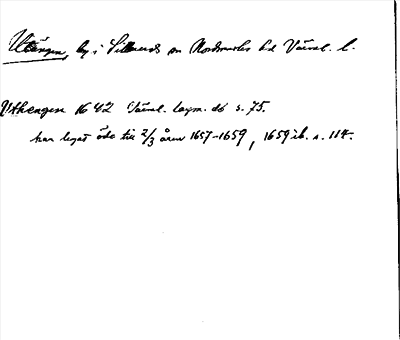 Utängen, by i Silleruds sn Nordmarks hd Värml. l.
Uthengen 1642 Värml. lagm. db s. 75.
har legat öde till 2/3 åren 1657-1659, 1659 ib. s. 114.